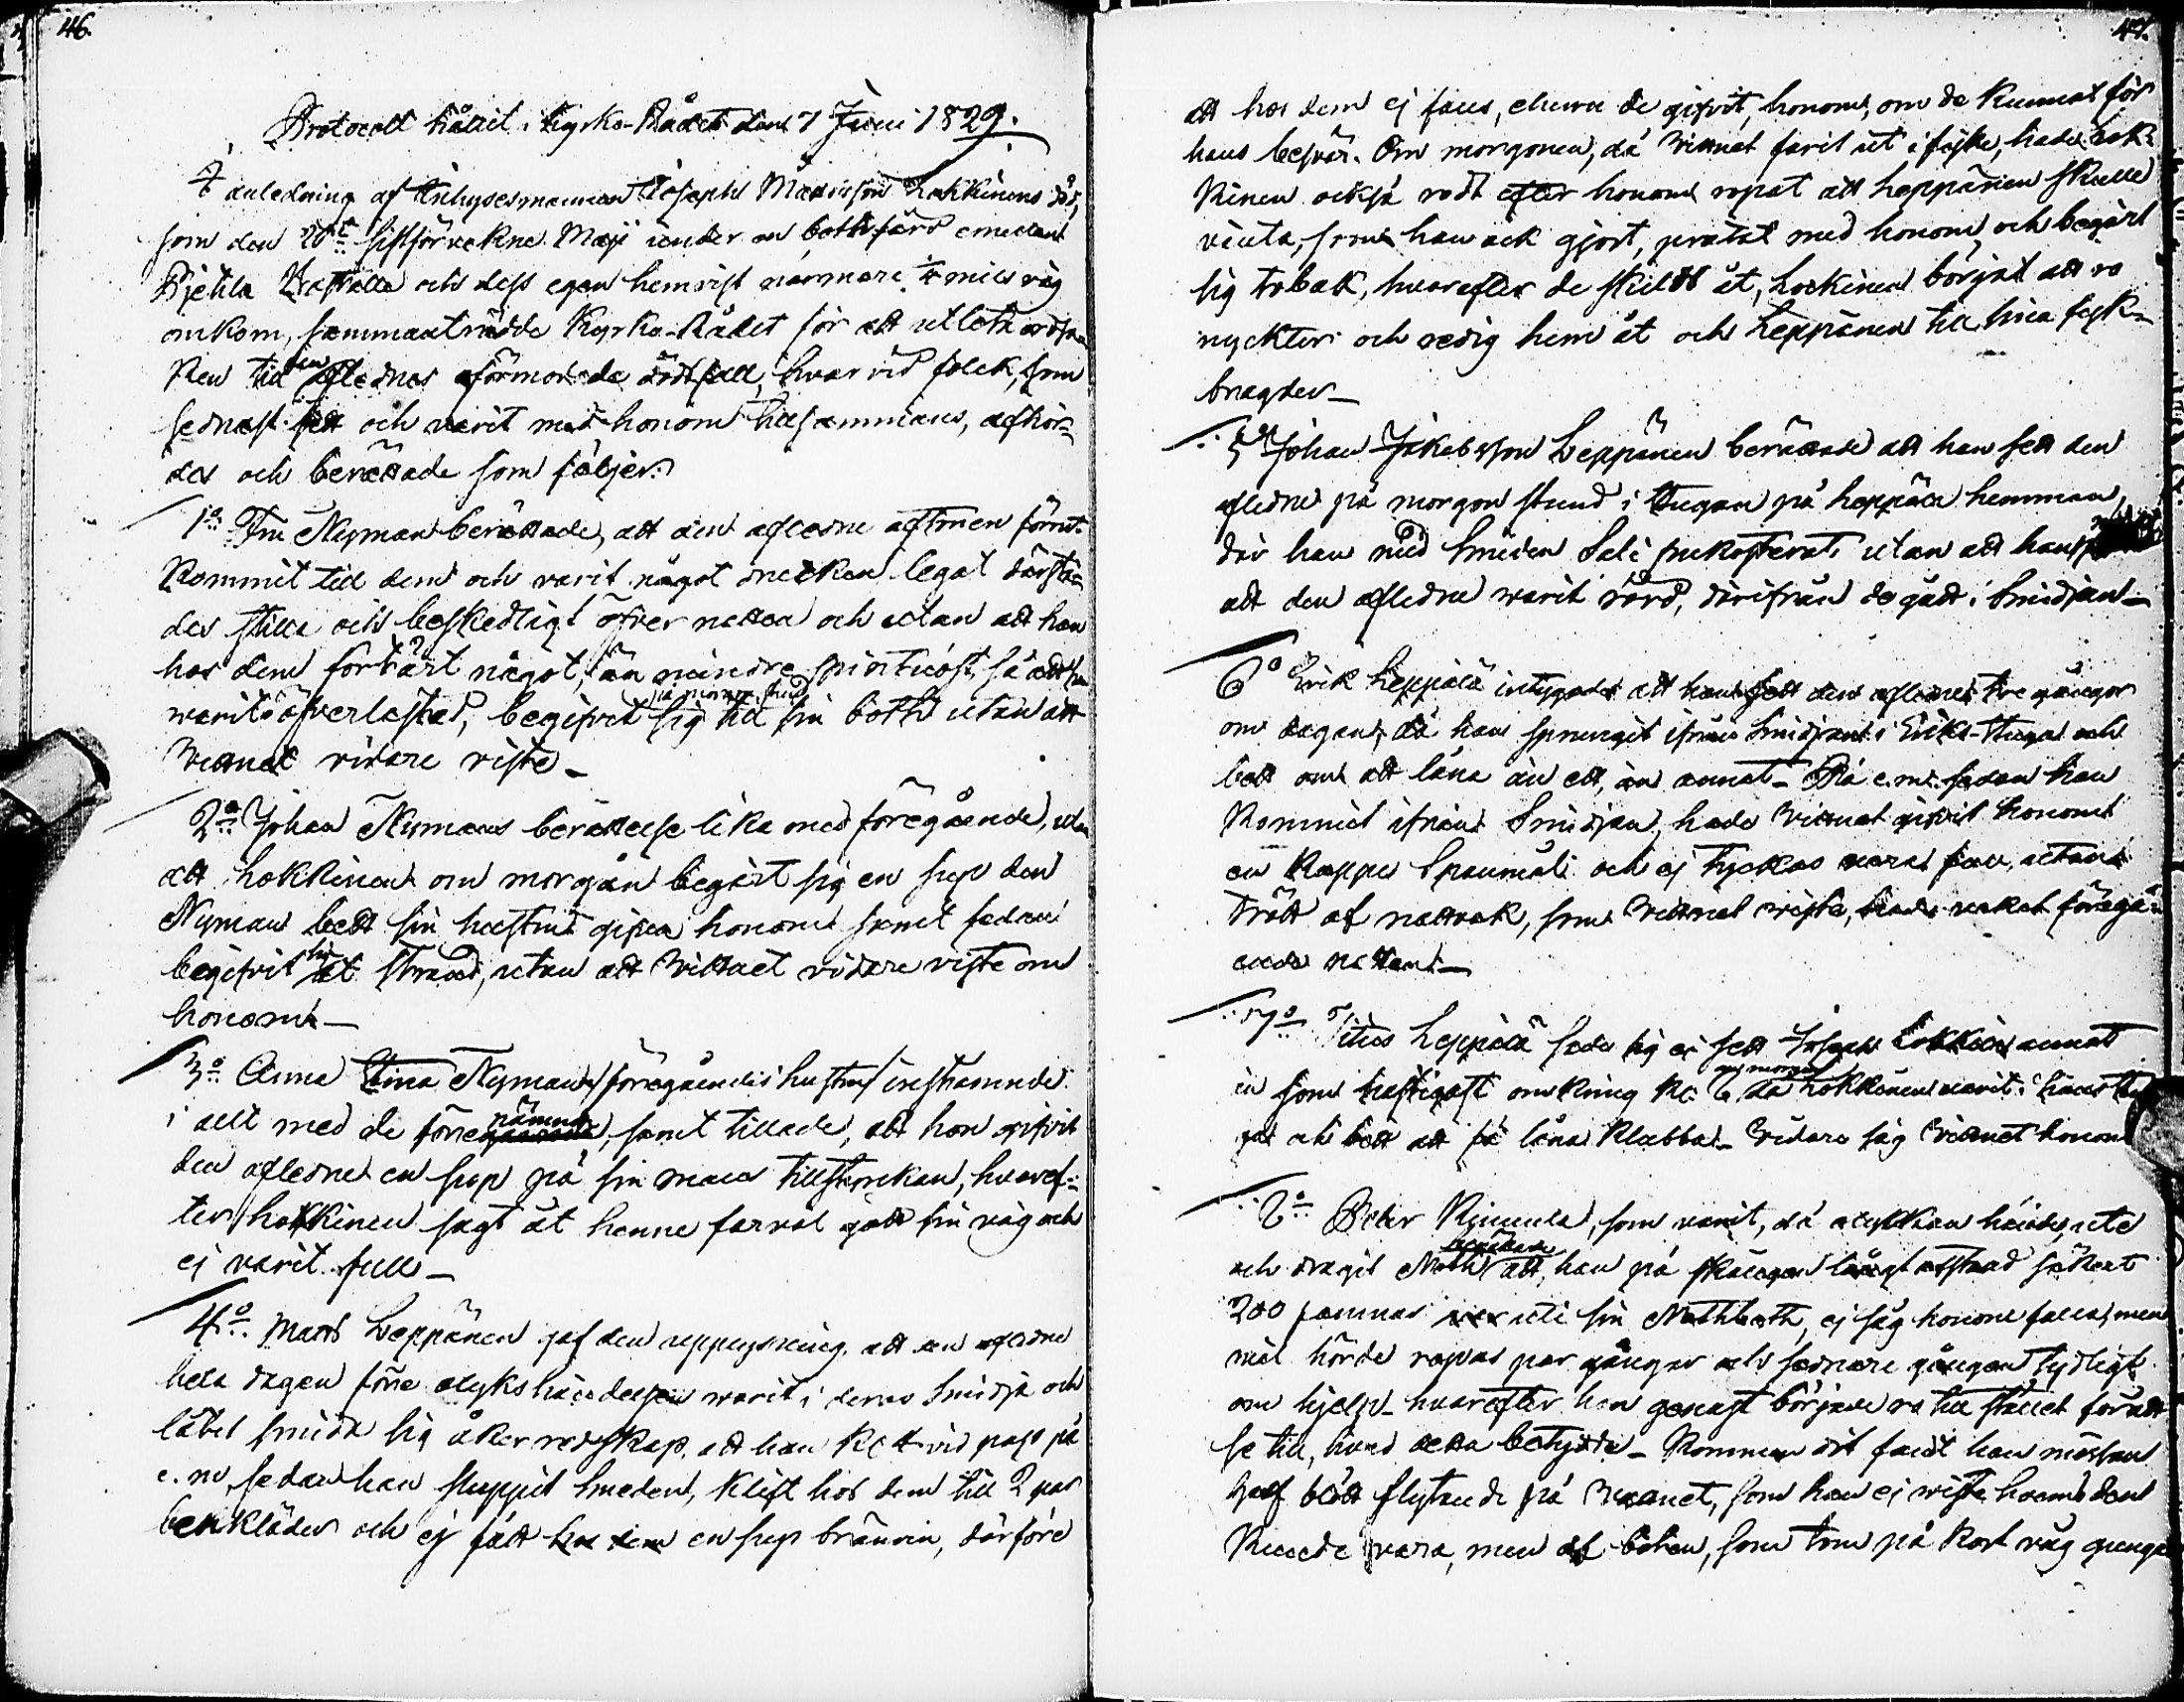 46.
Protocoll hållit i Kyrko-Rådet den 7 Juni 1829.
I anledning af Inhysesmannen Josephs Mattsson Lokkinens död,
som den 20de sistförvekne Maji under en båthsfärd emellan
Pjehla Kraftala och dess egen hemvist närmare 1/4 mils väg
omkom, sammanträdde Kyrko-Rådet för att utleta orsa-
ken till den aflednes förmodade dödsfall, hvarvid folck, som
sednast sett och varit med honom tillsammans, afhör-
des och berättade som följer:
1o Nyman berättade, att den afledne aftonen förut
kommit till dem och varit något drucken legat därstä-
des stilla och beskedligt öfver natten och utan att han
hos dem förtärt något, än mindre spirituöst, så att han
warit öfverlastad, begifvit sig på morgon stund till sin båth utan att
Vittnet vidare viste_
2o Johan Nymans berättelse lika med föregående, utan
att Lokkinen om morgån begärt sig en sup den
Nyman bedt sin hustru gifva honom samt sedan
begifvit sig åt strand, utan att Vittnet vidare viste om
honom_
3o Anna Stina Nyman /föregåendes hustru/ instämmde
i allt med de förenämnda, samt tillade, att hon gifvit
den afledne en sup på sin mans tillstyrckan, hvaref-
ter Lokkinen sagt åt henne farväl gått sin väg och
ej varit full_
4o Matts Leppänen gaf den upplysning, att den afledne
hela dagen före olyckshändelsen warit i deras Smidja och
låtit smida sig åker redskap, att han Kl 4 vid pass på
e.m. sedan han sluppit smeden, klift hos dem till 2 par
benkläder och ej fått hos dem en sup bränvin, därföre
47.
att hos dem ej fans, ehuru de gifvit honom, om de kunnat för
hans besvär. Om morgonen, då Vittnet farit ut i fiske, hade Lok-
kinen också rodt efter honom ropat att Leppänen skulle
vänta, som han ock gjort, pratat med honom och begärt
sig tobak, hvarefter de skildt åt, Lokkinen börjat att ro
nyckter och redig hem åt och Leppänen till sina fisk-
bragder_
5o Johan Jakobsson Leppänen berättade att han sett den
afledne på morgon stund i Stugan på Leppälä hemman,
där han med Smeden Sali frukosterat, utan att han
att den afledne warit rörd, därifrån de gått i Smidjan_
6o Erik Leppälä intygade att han sett den aflidne tre gånger
om dagen, då han sprungit ifrån Smidjan i Eriks Stuga och
bett om att låna än ett, än annat_ På e.m. sedan han
kommit ifrån Smidjan, hade Vittnet gifvit honom
en Kappe Spanmål och ej tyckas varas full, utan
trött af nattvak, som Vittnet wiste, hade vakat föregå-
ende natten_
7o Titus Leppälä sade sig ej sett Joseph Lokkinen annat
än som hastigast omkring Kl. 6 om morgon då Lokkinen varit i hans Stu
ga och bett att få låna Klubba_ Vidare såg Vittnet honom
8o Peter Kjumula, som varit, då olyckan hände, ute
och dragit Noth berättade att han på skäligen långt afstånd säkert
200 famnar var uti sin Nothbåth, ej såg honom falla, men
väl hörde ropas par gånger och sednare gången tydligt
om hjelp_ hvarefter han genast började ro till stället för att
se till, hvad detta betydde_ Kommen dit fant han mössan
half blöt flytande på Vattnet, som han ej wiste hvems den
kunde vara, men af båten, som tom på kort väg gunga